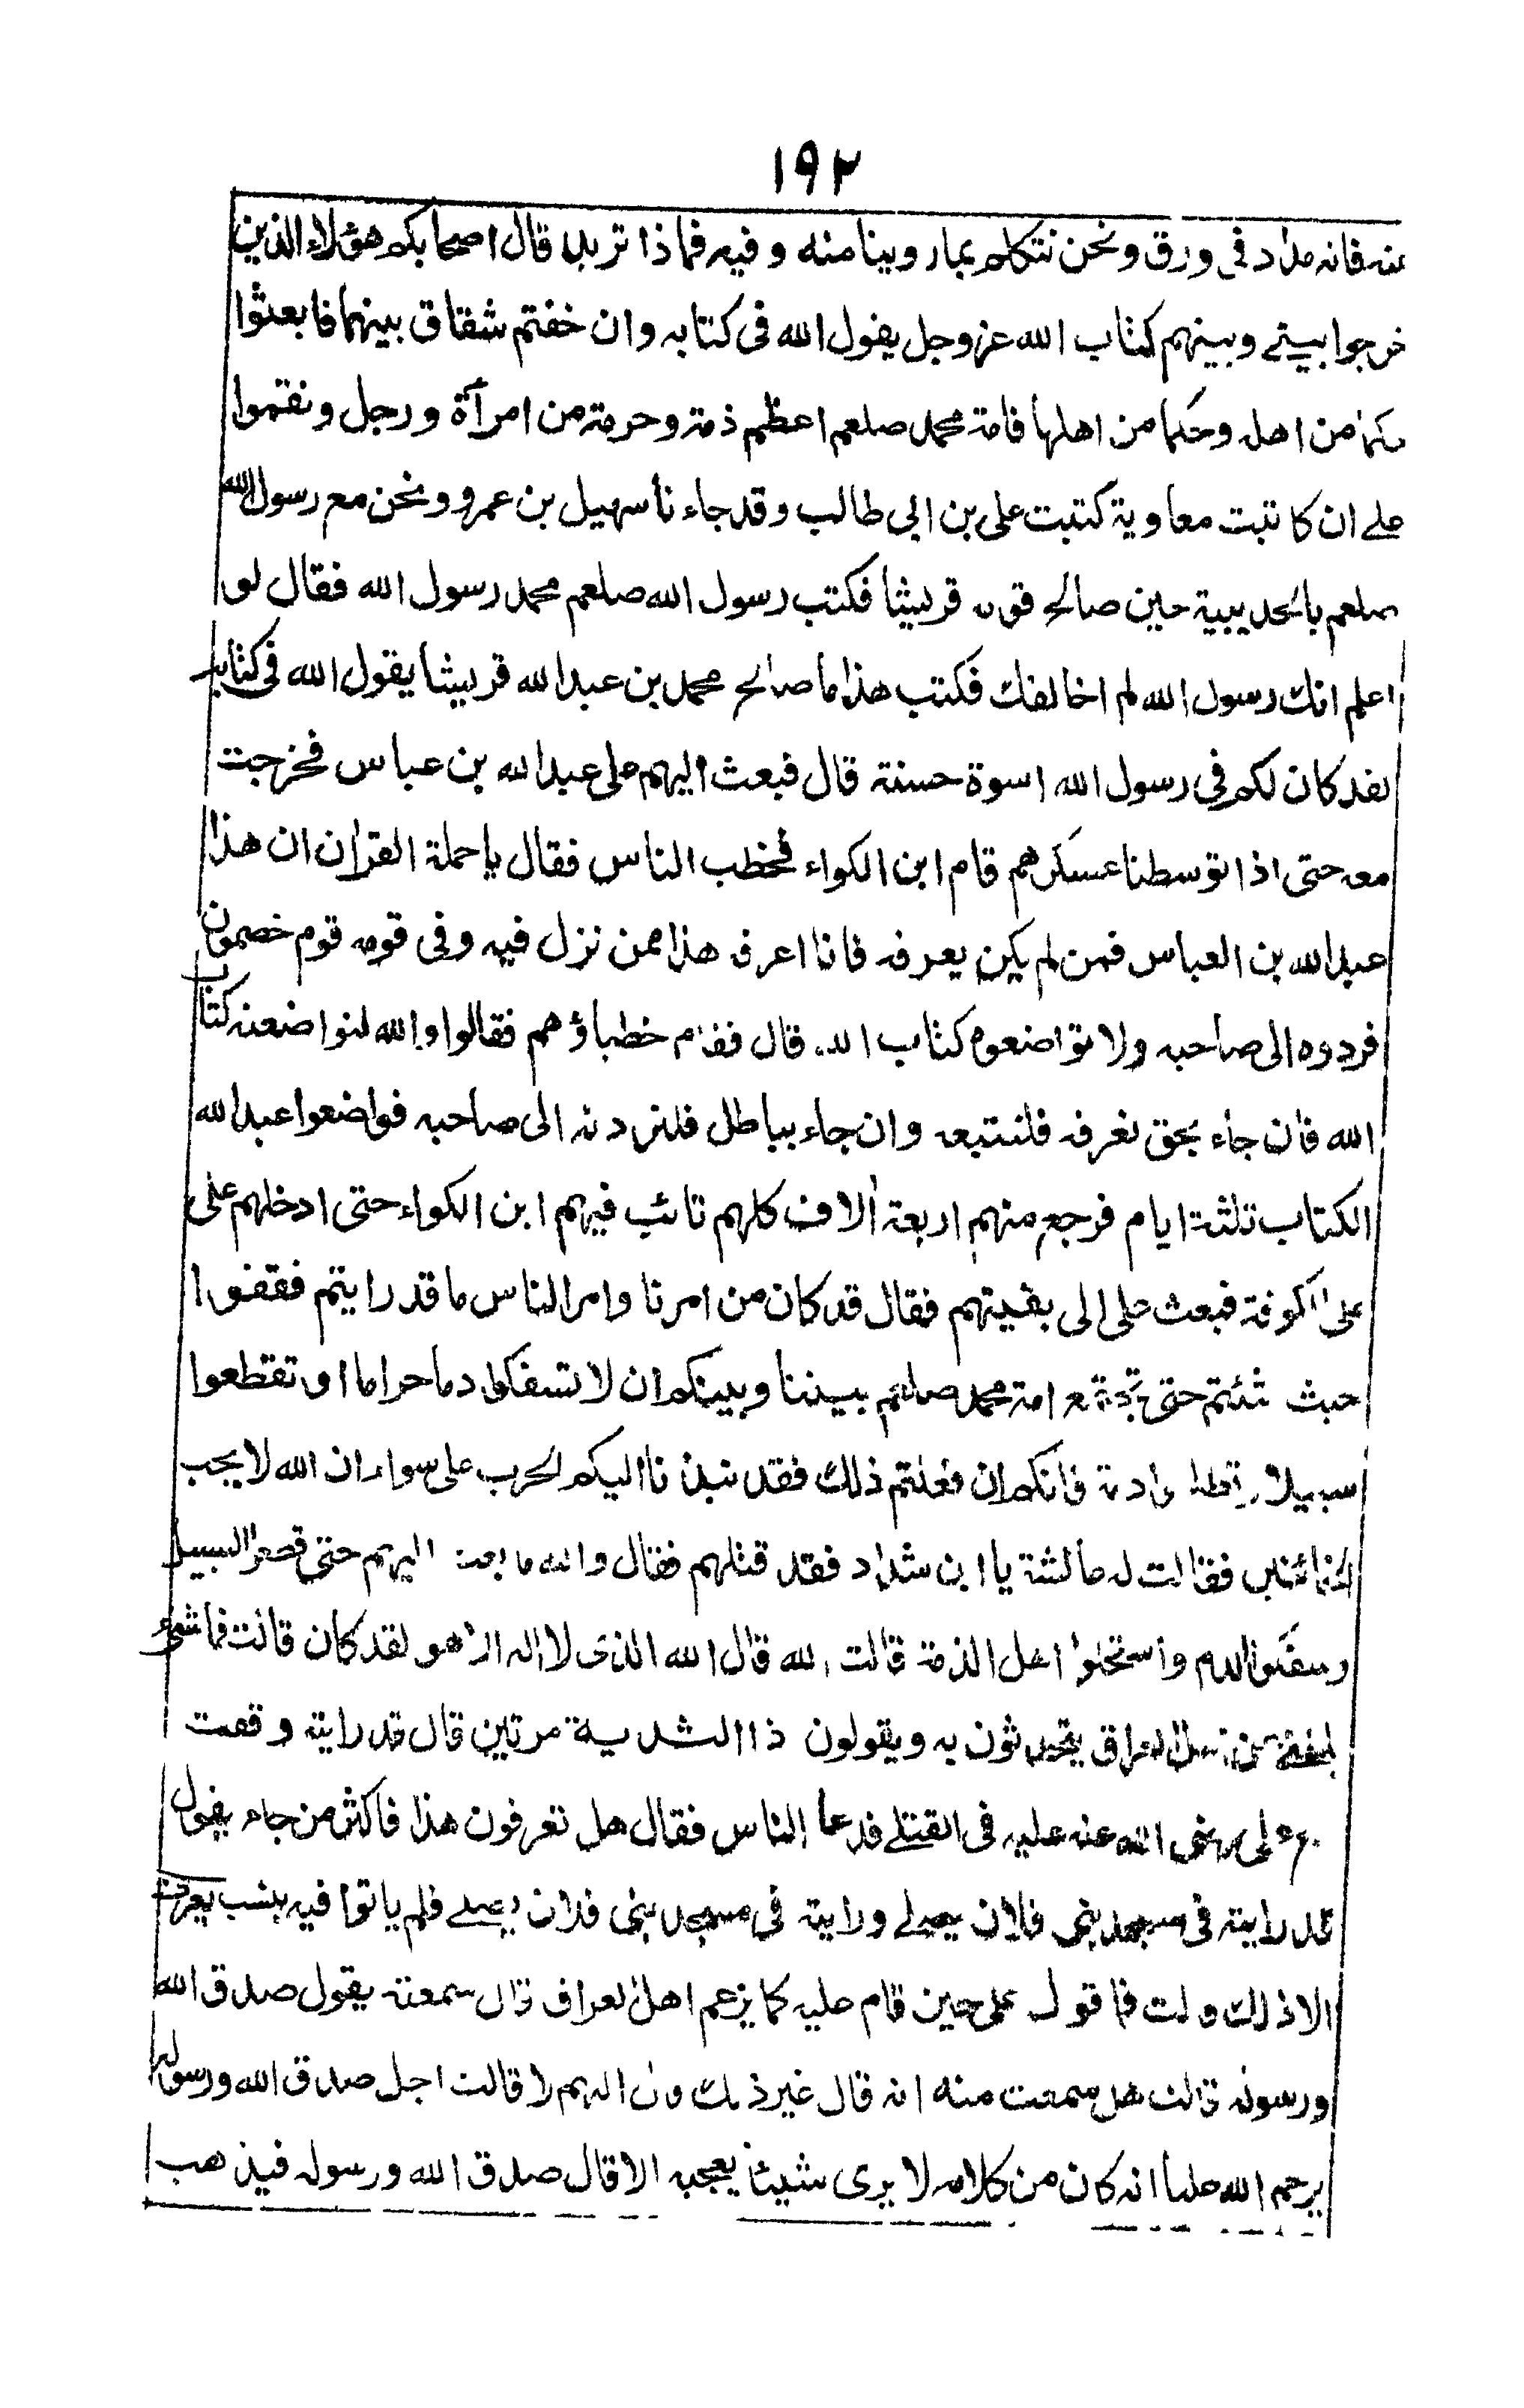 ١٩٢
عنه فانه مداد فى ورق ونحن نتكلم بما روينا منه وفيه فماذا تريد قال اصحابكم هؤلاء الذين
خرجوا بينى وبينهم كتاب الله عزوجل يقول الله فى كتابه وان خفتم شقاق بينهما فابعثوا
حكما من اهله وحكما من اهلها فامة محمد صلعم اعظم ذمة وحرمة من امرأة ورجل ونقموا
على ان كاتبت معاوية كتبت على بن ابى طالب وقد جاءنا سهيل بن عمرو ونحن مع رسول الله
صلعم بالحديبية حين صالح قومه قريشا فكتب رسول الله صلعم محمد رسول الله فقال لو
اعلم انك رسول الله لم اخالفك فكتب هذا ما صالح محمد بن عبد الله قريشا يقول الله فى كتابه
لقد كان لكم فى رسول الله اسوة حسنة قال فبعث اليهم على عبد الله بن عباس فخرجت
معه حتى اذا توسطنا عسكرهم قام ابن الكواء فخطب الناس فقال يا حملة القران ان هذا
عبد الله بن العباس فمن لم يكن يعرفه فانا اعرفه هذا ممن نزل فيه وفى قومه قوم خصمون
فردوه الى صاحبه ولا تواضعوه كتاب الله قال فقام خطباؤهم فقالوا والله لنواضعنه كتاب
الله فان جاء بحق نعرفه فلنتبعه وان جاء بباطل فلنردنه الى صاحبه فواضعوا عبد الله
الكتاب ثلثة ايام فرجع منهم اربعة الاف كلهم تائب فيهم ابن الكواء حتى ادخلهم على
على الكوفة فبعث على الى بقيتهم فقال قد كان من امرنا وامر الناس ما قد رايتم فقفوا
حيث شئتم حتى تجتمع امة محمد صلعم بيننا وبينكم ان لا تسفكوا دما حراما او تقطعوا
سبيلا فانكم ان فعلتم ذلك فقد نبذنا اليكم الحرب على سواء ان الله لا يحب
الخائنين فقالت له عائشة يا ابن شداد فقد قتلهم فقال والله ما بعث اليهم حتى قطعوا السبيل
وسفكوا الدم واستحلوا اهل الذمة قالت الله قال الله الذى لا اله الا هو لقد كان قالت فما شىء
بلغنى عن اهل العراق يتحدثون به ويقولون ذا الثدية مرتين قال قد رايته وقمت
مع على رضى الله عنه عليه فى القتلى فدعا الناس فقال هل تعرفون هذا فاكثر من جاء يقول
قد رايته فى مسجد بنى فلان يصلى ورايته فى مسجد بنى فلان يصلى فلم ياتوا فيه بثبت يعرف
الا ذلك قالت فما قول على حين قام عليه كما يزعم اهل العراق قال سمعته يقول صدق الله
ورسوله قالت هل سمعت منه انه قال غير ذلك قال اللهم لا قالت اجل صدق الله ورسوله
يرحم الله عليا انه كان من كلامه لا يرى شيئا يعجبه الا قال صدق الله ورسوله فيذهب